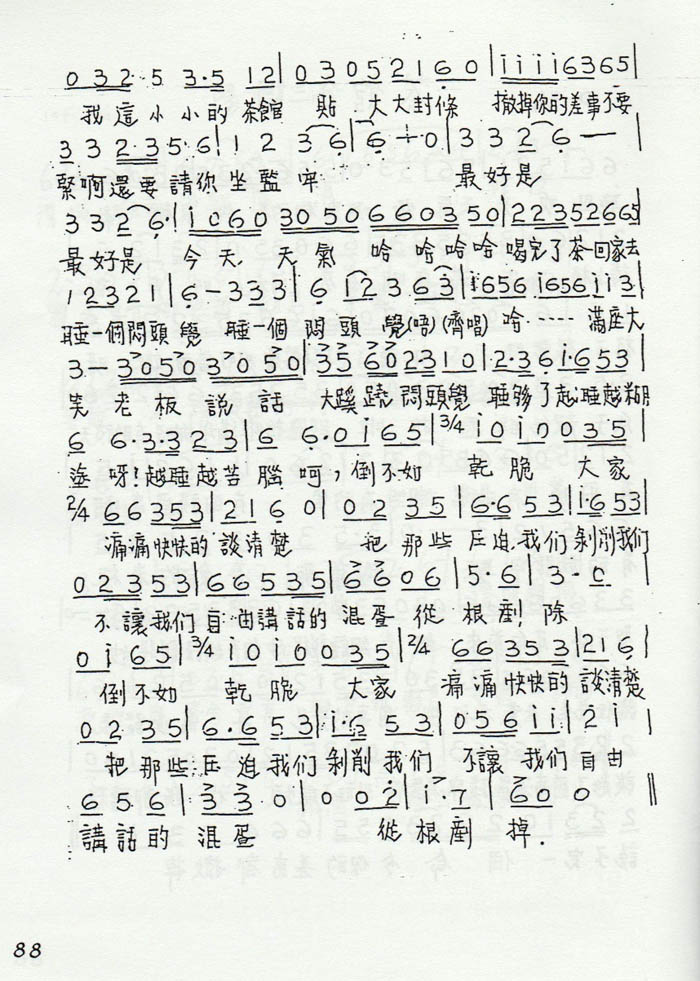 0 3 2· 5 3·5 1 2 | 0 3 0 5 2 1 6 0 | i i i i 6 3 6 5 |
我這小小的茶館 貼 大大封條 撤掉你的差事不要
3 3 2·3 5·6 | 1 2 3 6 | 6 ÷ 0 | 3 3 2 6 — |
緊啊還要請你坐監牢 最好是
3 3 2 6· | i 0 6 0 3 0 5 0 6 6 0 3 5 0 | 2 2 3 5 2 6 6 5 |
最好是 今天,天氣 哈哈哈哈 喝完了茶回家去
1 2 3 2 1 | 6 - 3 3 3 | 6 1 2 3 6 3 | i 6 5 6 i 6 5 6 i i 3 |
睡一個悶頭覺 睡一個悶頭覺(唔)(齊唱)哈······ 滿座大
3 — 3 0 5 0 3 0 5 0 | 3 5 6 0 2 3 1 0 | 2·3 6 i·6 5 3 |
笑 老板說話 大蹊蹺悶頭覺 睡夠了越睡越糊
6 6·3·3 2 3 | 6 6·0 i 6 5 | 3/4 i 0 i 0 0 3 5 |
塗呀!越睡越苦腦呵,倒不如 乾脆 大家
2/4 6 6 3 5 3 | 2 1 6 0 | 0 2 3 5 | 6·6 5 3 | i·6 5 3 |
痛痛快快的談清楚 把那些壓迫我們剝削我們
0 2 3 5 3 | 6 6 5 3 5 | 6 6 0 6 | 5·6 | 3·0 |
不讓我們自由講話的混蛋從根剷除
0 i 6 5 | 3/4 i 0 i 0 0 3 5 | 2/4 6 6 3 5 3 | 2 1 6 |
倒不如 乾脆 大家 痛痛快快的談清楚
0 2 3 5 | 6·6 5 3 | i·6 5 3 | 0 5 6 i i | 2 i |
把那些壓迫我們剝削我們 不讓我們自由
6 5 6 | 3 3 0 | 0 0 2 | i·7 | 6 0 0 ‖
講話的混蛋 從根剷掉.
88